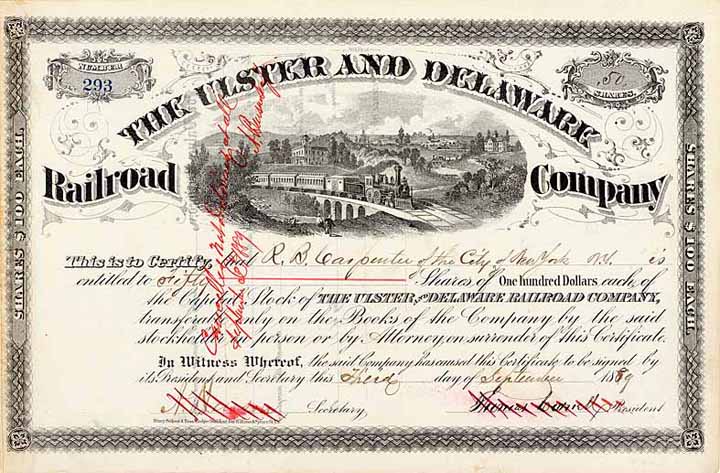 NUMBER
293
50
SHARES.
THE ULSTER AND DELAWARE
Railroad Company
SHARES $100 EACH
SHARES $100 EACH
This is to Certify, that R. B. Carpenter of the City of New York N.Y. is
entitled to Fifty Shares of One hundred Dollars each, of
the Capital Stock of THE ULSTER AND DELAWARE RAILROAD COMPANY,
transferable only on the Books of the Company by the said
stockholder in person or by Attorney, on surrender of this Certificate.
In Witness Whereof, the said Company has caused this Certificate to be signed by
its President and Secretary this Third day of September 1889
Secretary, Thomas Cornell President